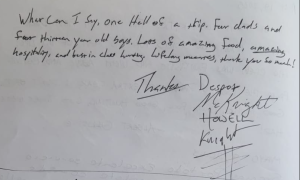 What Can I Say, one Hell of a trip. Four dads and
four thirteen year old boys. Lots of amazing food, amazing
hospitality, and best in class hunting. Lifelong memories, thank you so much!
Thanks, Despot
McKnight
HOWELL
Knight